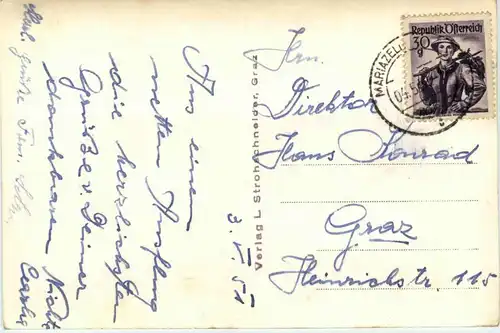 Republik Österreich
30
MARIAZELL
Hrn.
Direktor
Hans Konrad
Graz
Heinrichstr. 115
Verlag L. Strohschneider, Graz
3. V. 51
Aus einem
netten Ausflug
die herzlichsten
Grüße v. Deiner
dankbaren Nichte
Grüße Fam.